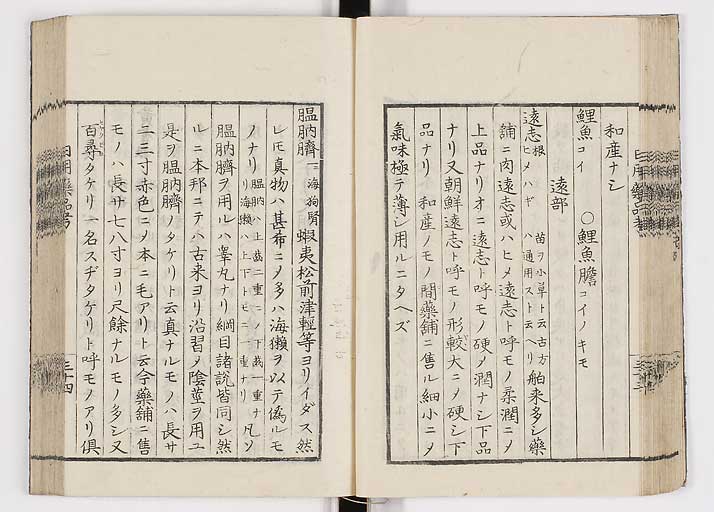 和産ナシ
鯉魚コイ 〇鯉魚膽コイノキモ
遠部
遠志根ヒメハギ 苗ヲ小草ト云古方ハ通用スト云ヘリ 舶来多シ藥
舗ニ肉遠志或ハヒメ遠志ト呼モノ柔潤ニメ
上品ナリオニ遠志ト呼モノ硬メ潤ナシ下品
ナリ又朝鮮遠志ト呼モノ形較大ニメ硬シ下
品ナリ 和産ノモノ間藥舗ニ售ル細小ニメ
氣味極テ薄シ用ルニタヘズ
膃肭臍 一ニ海狗腎 蝦夷松前津輕等ヨリイダス然
レモ真物ハ甚希ニメ多ハ海獺ヲ以テ偽ルモ
ノナリ 膃肭ハ上齒二重ニメ下齒一重ナリ海獺ハ上下トモニ一重ナリ 凡ソ
膃肭臍ヲ用ルハ睾丸ナリ綱目諸説皆同シ然
ルニ本邦ニテハ古来ヨリ沿習メ陰莖ヲ用ユ
是ヲ膃肭臍ノタケリト云真ナルモノハ長サ
二三寸赤色ニメ本ニ毛アリト云今藥舗ニ售
モノハ長サ七八寸ヨリ尺餘ナルモノ多シ又
百尋タケリ一名スヂタケリト呼モノアリ俱
日用藥品考
三十四